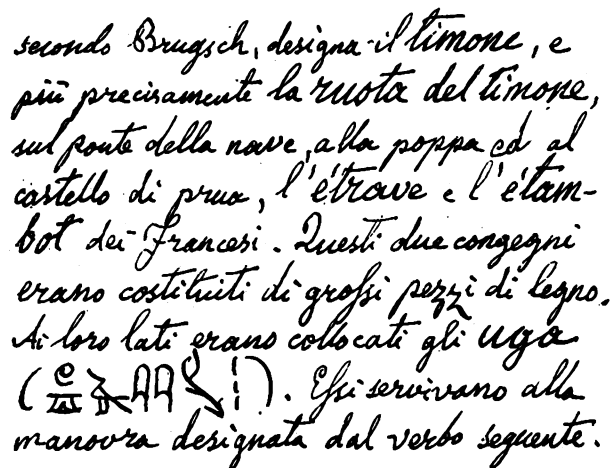 secondo Brugsch, designa il timone, e
più precisamente la ruota del timone,
sul ponte della nave, alla poppa ed al
castello di prua, l'étrave e l'étam-
bot dei Francesi. Questi due congegni
erano costituiti di grossi pezzi di legno.
Ai loro lati erano collocati gli uga
( ). Essi servivano alla
manovra designata dal verbo seguente.